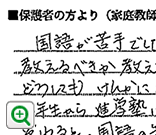 ■保護者の方より（家庭教師
国語が苦手でし
教えるべきか教え
どうしても けんかに
年生から 進学塾